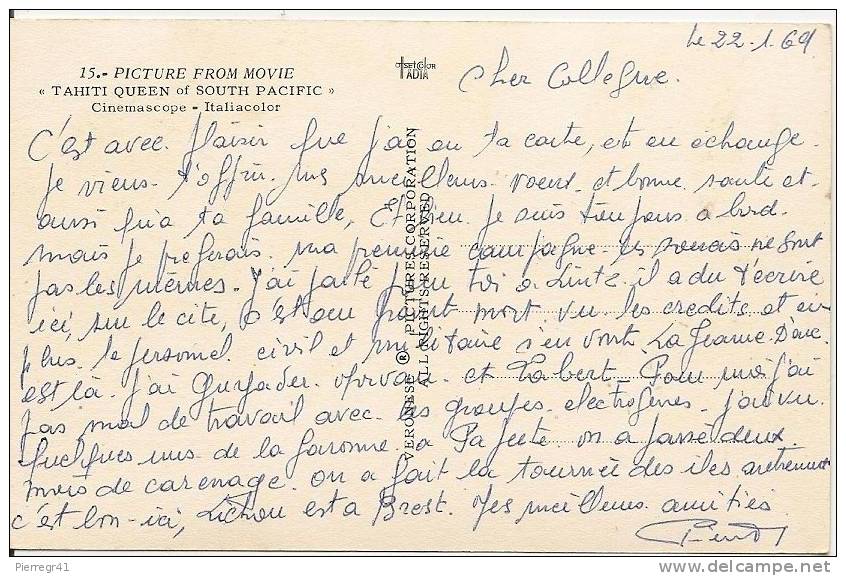 le 22.1.69
15.- PICTURE FROM MOVIE
« TAHITI QUEEN of SOUTH PACIFIC »
Cinemascope - Italiacolor
OFFSETCOLOR
ADIA
Cher Collegue.
C'est avec plaisir que j'ai eu ta carte, et en échange
Je viens t'offrir mes meilleurs voeux et bonne santé et
aussi qu'a ta famille, Je suis toujours a bord
mais je preferais ma première campagne les soucis ne sont
pas les mêmes. J'ai parlé pour toi a il a du t'écrire
ici, sur le cité, c'est au point mort vu les credits et en
plus le personnel civil et militaire s'en vont. La Jeanne D'arc
est là. J'ai et Pour moi j'ai
pas mal de travail avec les groupes electrogènes. J'ai vu
quelques uns de la Garonne a Papeete on a passé deux
mois de carenage. on a fait la tournée des iles autrement
c'est bon ici, est a Brest. Mes meilleures amitiés
VERONESE ® PICTURES CORPORATION
ALL RIGHTS RESERVED
Pierregr41
delcampe.net